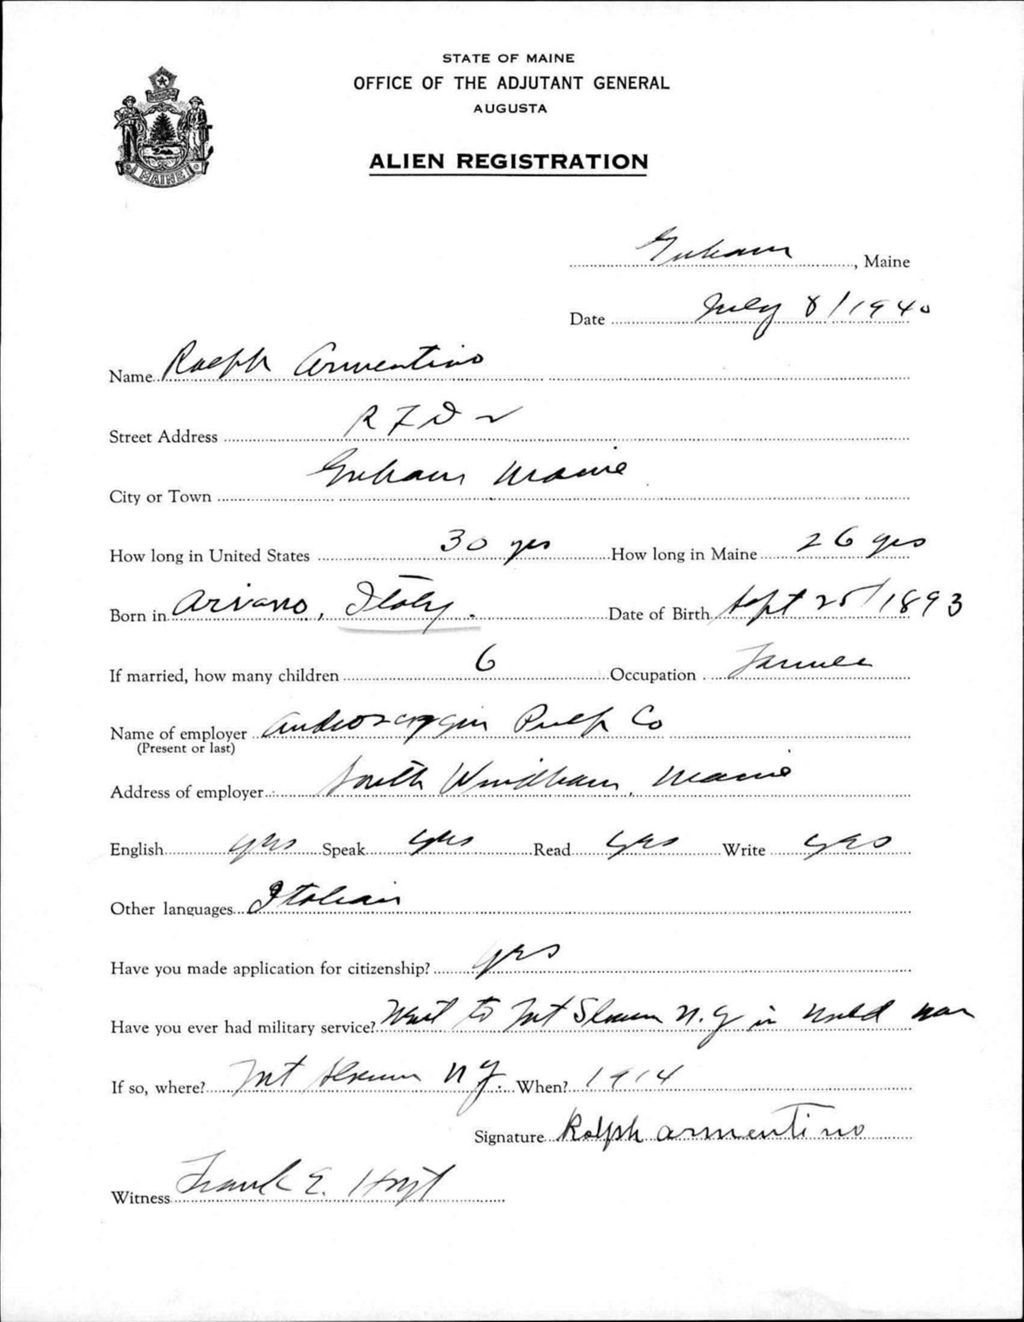 STATE OF MAINE
OFFICE OF THE ADJUTANT GENERAL
AUGUSTA
MAINE
ALIEN REGISTRATION
Gorham, Maine
Date July 8/1940
Name Ralph Armentino
Street Address R F D 2
City or Town Gorham Maine
How long in United States 30 yrs How long in Maine 26 yrs
Born in Ariano, Italy. Date of Birth Sept 25/1893
If married, how many children 6 Occupation Farmer
Name of employer Androscoggin Pulp Co
(Present or last)
Address of employer South Windham, Maine
English yes Speak yes Read yes Write yes
Other languages Italian
Have you made application for citizenship? yes
Have you ever had military service? Went to Mt N.Y in world war
If so, where? Mt N Y. When? 1914
Signature Ralph armentino
Witness Frank E. Hoyt